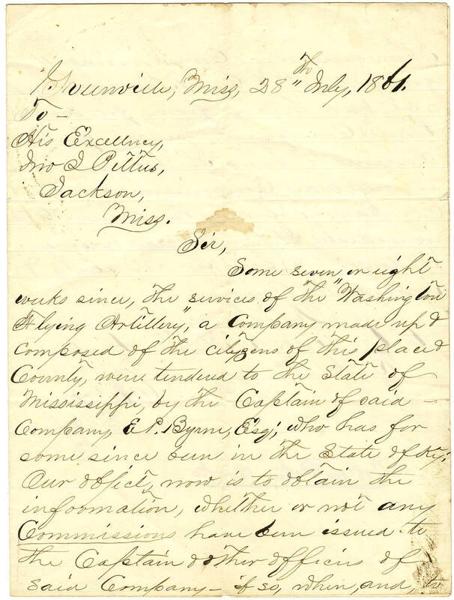 Greenville, Miss, 28th July, 1861.
To -
His Excellency,
Jno J Pettus,
Jackson,
Miss.
Sir,
Some seven or eight
weeks since, the services of the "Washington
Flying Artillery", a Company made up &
composed of the citizens of this place &
County, were tendered to the State of
Mississippi, by the Captain of said -
Company, E. P. Byrne, Esq; who has for
some since been in the State of Ky;
Our object, now is to obtain the
information, whether or not any
Commissions have been issued to
the Captain & other officers of
said Company - if so, when, and,